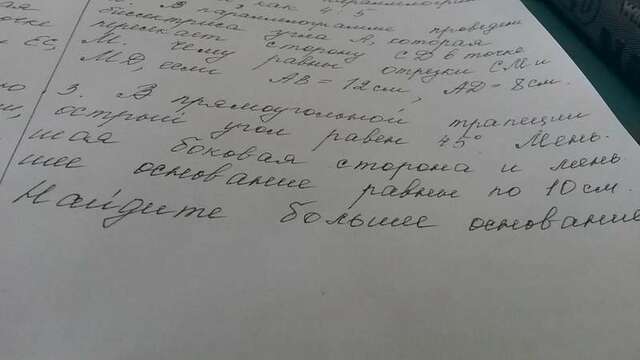 как параллелогр
4:5
2. В параллелограмме проведена
биссектриса угла А, которая
пересекает сторону CD в точке
М. Чему равны отрезки CM и
MD, если AB = 12 см, AD = 8 см.
3. В прямоугольной трапеции
острый угол равен 45° Мень-
шая боковая сторона и мень
шее основание равны по 10 см.
Найдите большее основание